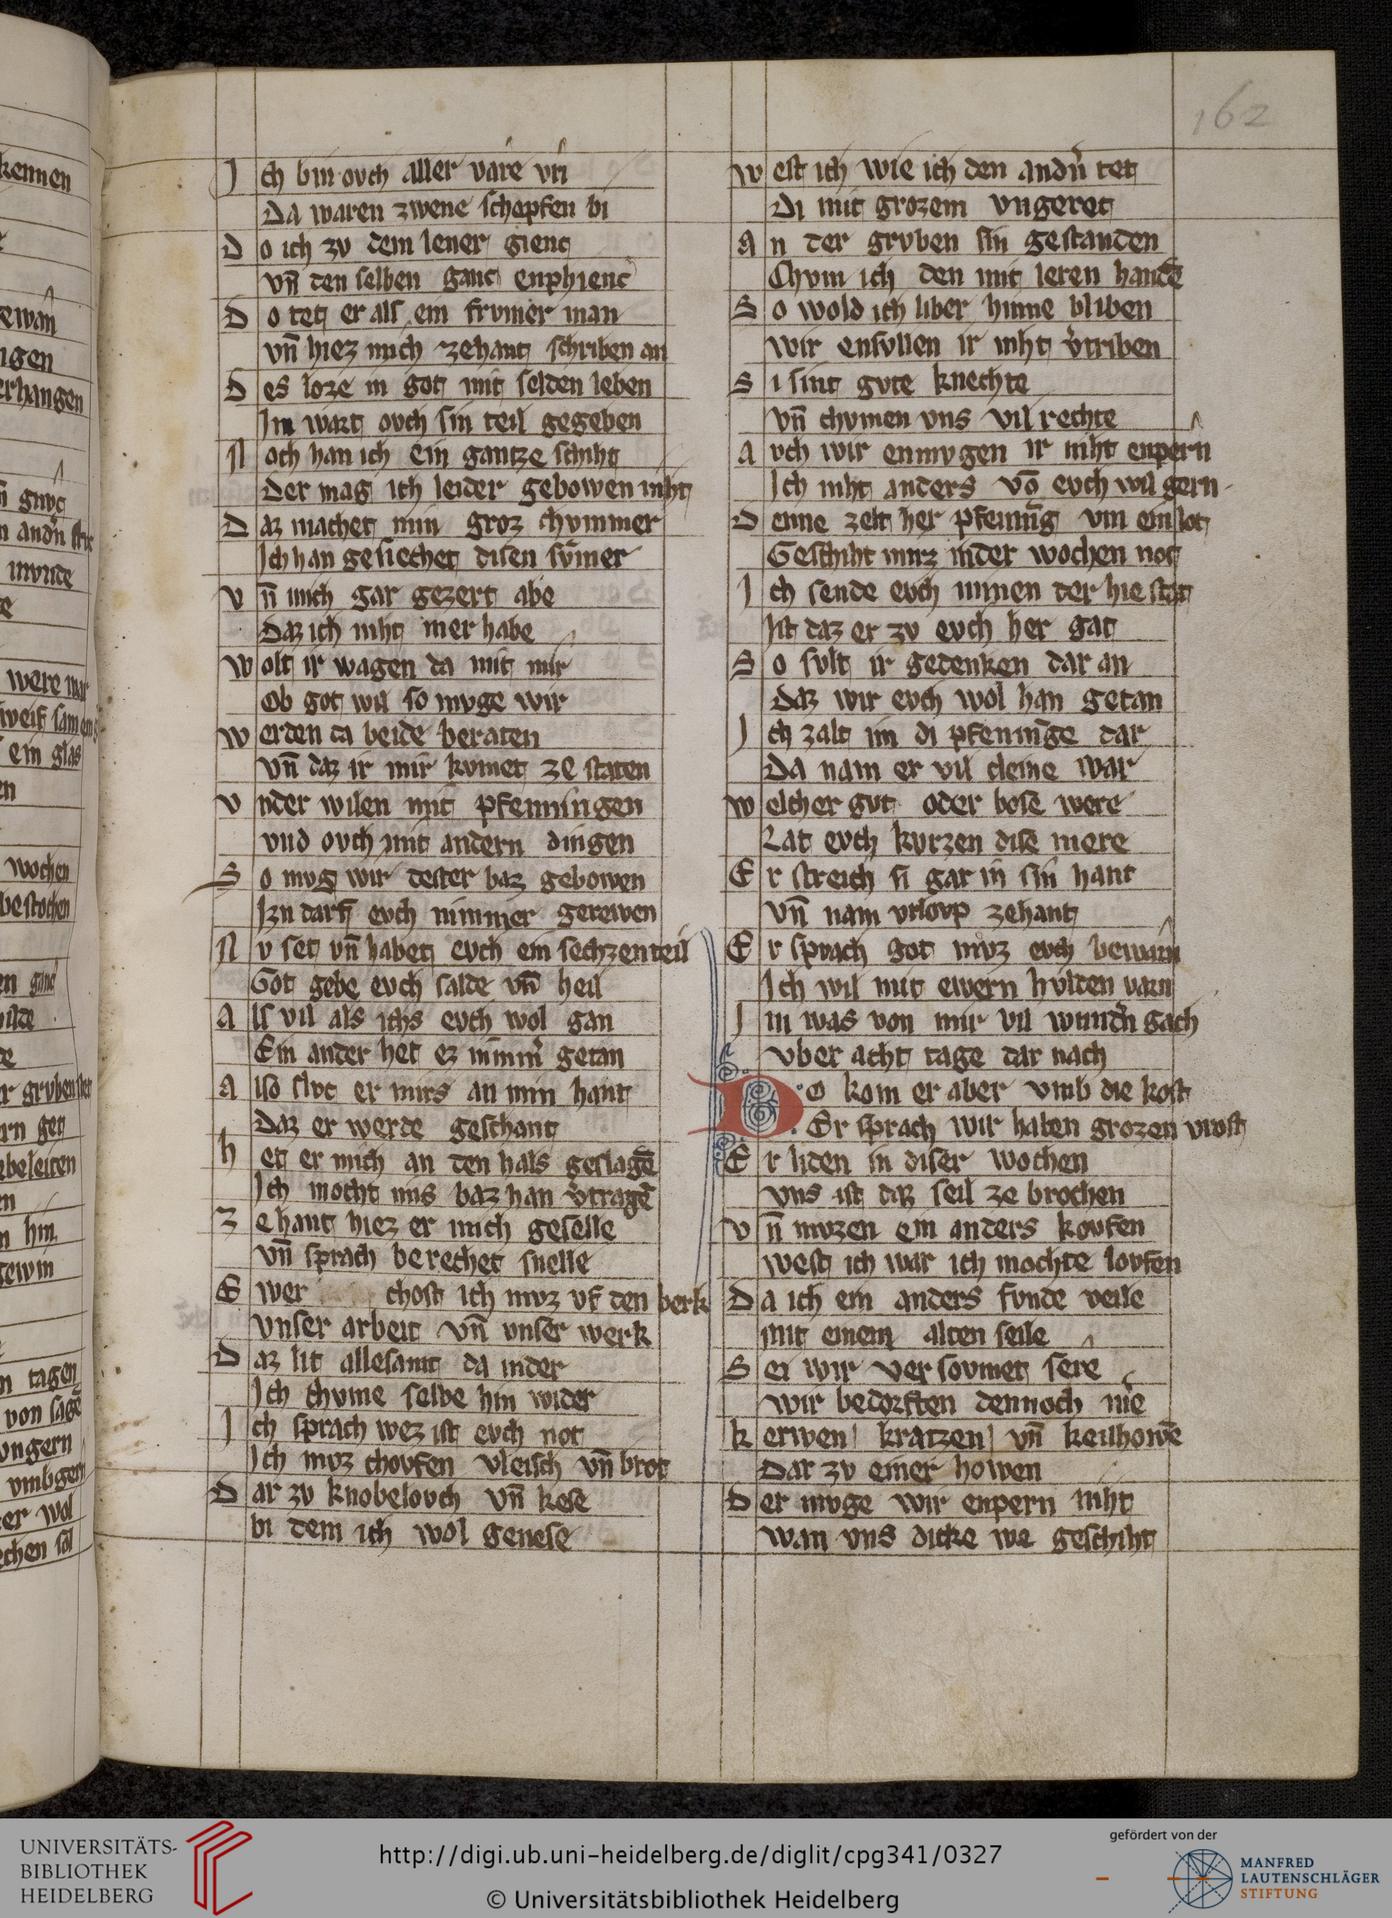 162
Ich bin ouch aller vare vri
Da waren zwene schepfen bi
Do ich zv dem lener gienc
Vn̄ den selben ganc enphienc
Do tet er als ein frvmer man
Vn̄ hiez mich zehant schriben an
Des loze in got mit selden leben
Im wart ouch sin teil gegeben
Noch han ich ein gantze schiht
Der mag ich leider gebowen niht
Daz machet min groz chvmmer
Ich han gesiechet disen svmer
Vn̄ mich gar gezert abe
Daz ich niht mer habe
Wolt ir wagen da mit mir
Ob got wil so mvge wir
Werden da beide beraten
Vn̄ daz ir mir kvmet ze staten
Vnder wilen mit pfenningen
Vnd ovch mit andern dingen
So mvg wir dester baz gebowen
Izn darf evch nimmer gerewen
Nv set vn̄ habet evch ein sechzenteil
Got gebe evch salde vn̄ heil
Als vil als ichs evch wol gan
Ein ander het ez nimm̄ getan
Also slvc er mirs an min hant
Daz er werde geschant
Het er mich an den hals geslagē
Ich mocht mis baz han v̄tragē
Zehant hiez er mich geselle
Vn̄ sprach berechet snelle
Ewer chost ich mvz vf den berk
Vnser arbeit vn̄ vnser werk
Daz lit allesamt da nider
Ich chvme selbe hin wider
Ich sprach wez ist evch not
Ich mvz chovfen vleisch vn̄ brot
Dar zv knobelovch vn̄ kese
Bi dem ich wol genese
West ich wie ich den andn̄ tet
Di mit grozem vngeret
An der grvben sin gestanden
Chvm ich den mit leren handē
So wold ich liber hinne bliben
Wir ensvllen ir niht v̄triben
Si sint gvte knechte
Vn̄ chvmen vns vil rechte
Avch wir enmvgen ir niht enpern
Ich niht anders vō evch wil gern
Denne zelt her pfennīg vm ein lot
Geschiht mirz inder wochen not
Ich sende evch minen der hie stat
Ist daz er zv evch her gat
So svlt ir gedenken dar an
Daz wir evch wol han getan
Ich zalt im di pfenninge dar
Da nam er vil cleine war
Welcher gvt oder bose were
Lat evch kvrzen dise mere
Er streich si gar in sin hant
Vn̄ nam vrlovp zehant
Er sprach got mvz evch bewarn
Ich wil mit ewern hvlden varn
Im was von mir vil wundn̄ gach
Vber acht tage dar nach
Do kom er aber vmb die kost
Er sprach wir haben grozen vrost
Erliden in diser wochen
Vns ist daz seil ze brochen
Vn̄ mvzen ein anders kovfen
West ich war ich mochte lovfen
Da ich ein anders fvnde veile
Mit einem alten seile
Sei wir versovmet sere
Wir bedorften dennoch me
Kerwen kratzen vn̄ keilhowē
Dar zv einer howen
Der mvge wir enpern niht
Wan vns dicke we geschiht
UNIVERSITÄTS-
BIBLIOTHEK
HEIDELBERG
http://digi.ub.uni-heidelberg.de/diglit/cpg341/0327
© Universitätsbibliothek Heidelberg
gefördert von der
MANFRED
LAUTENSCHLÄGER
STIFTUNG